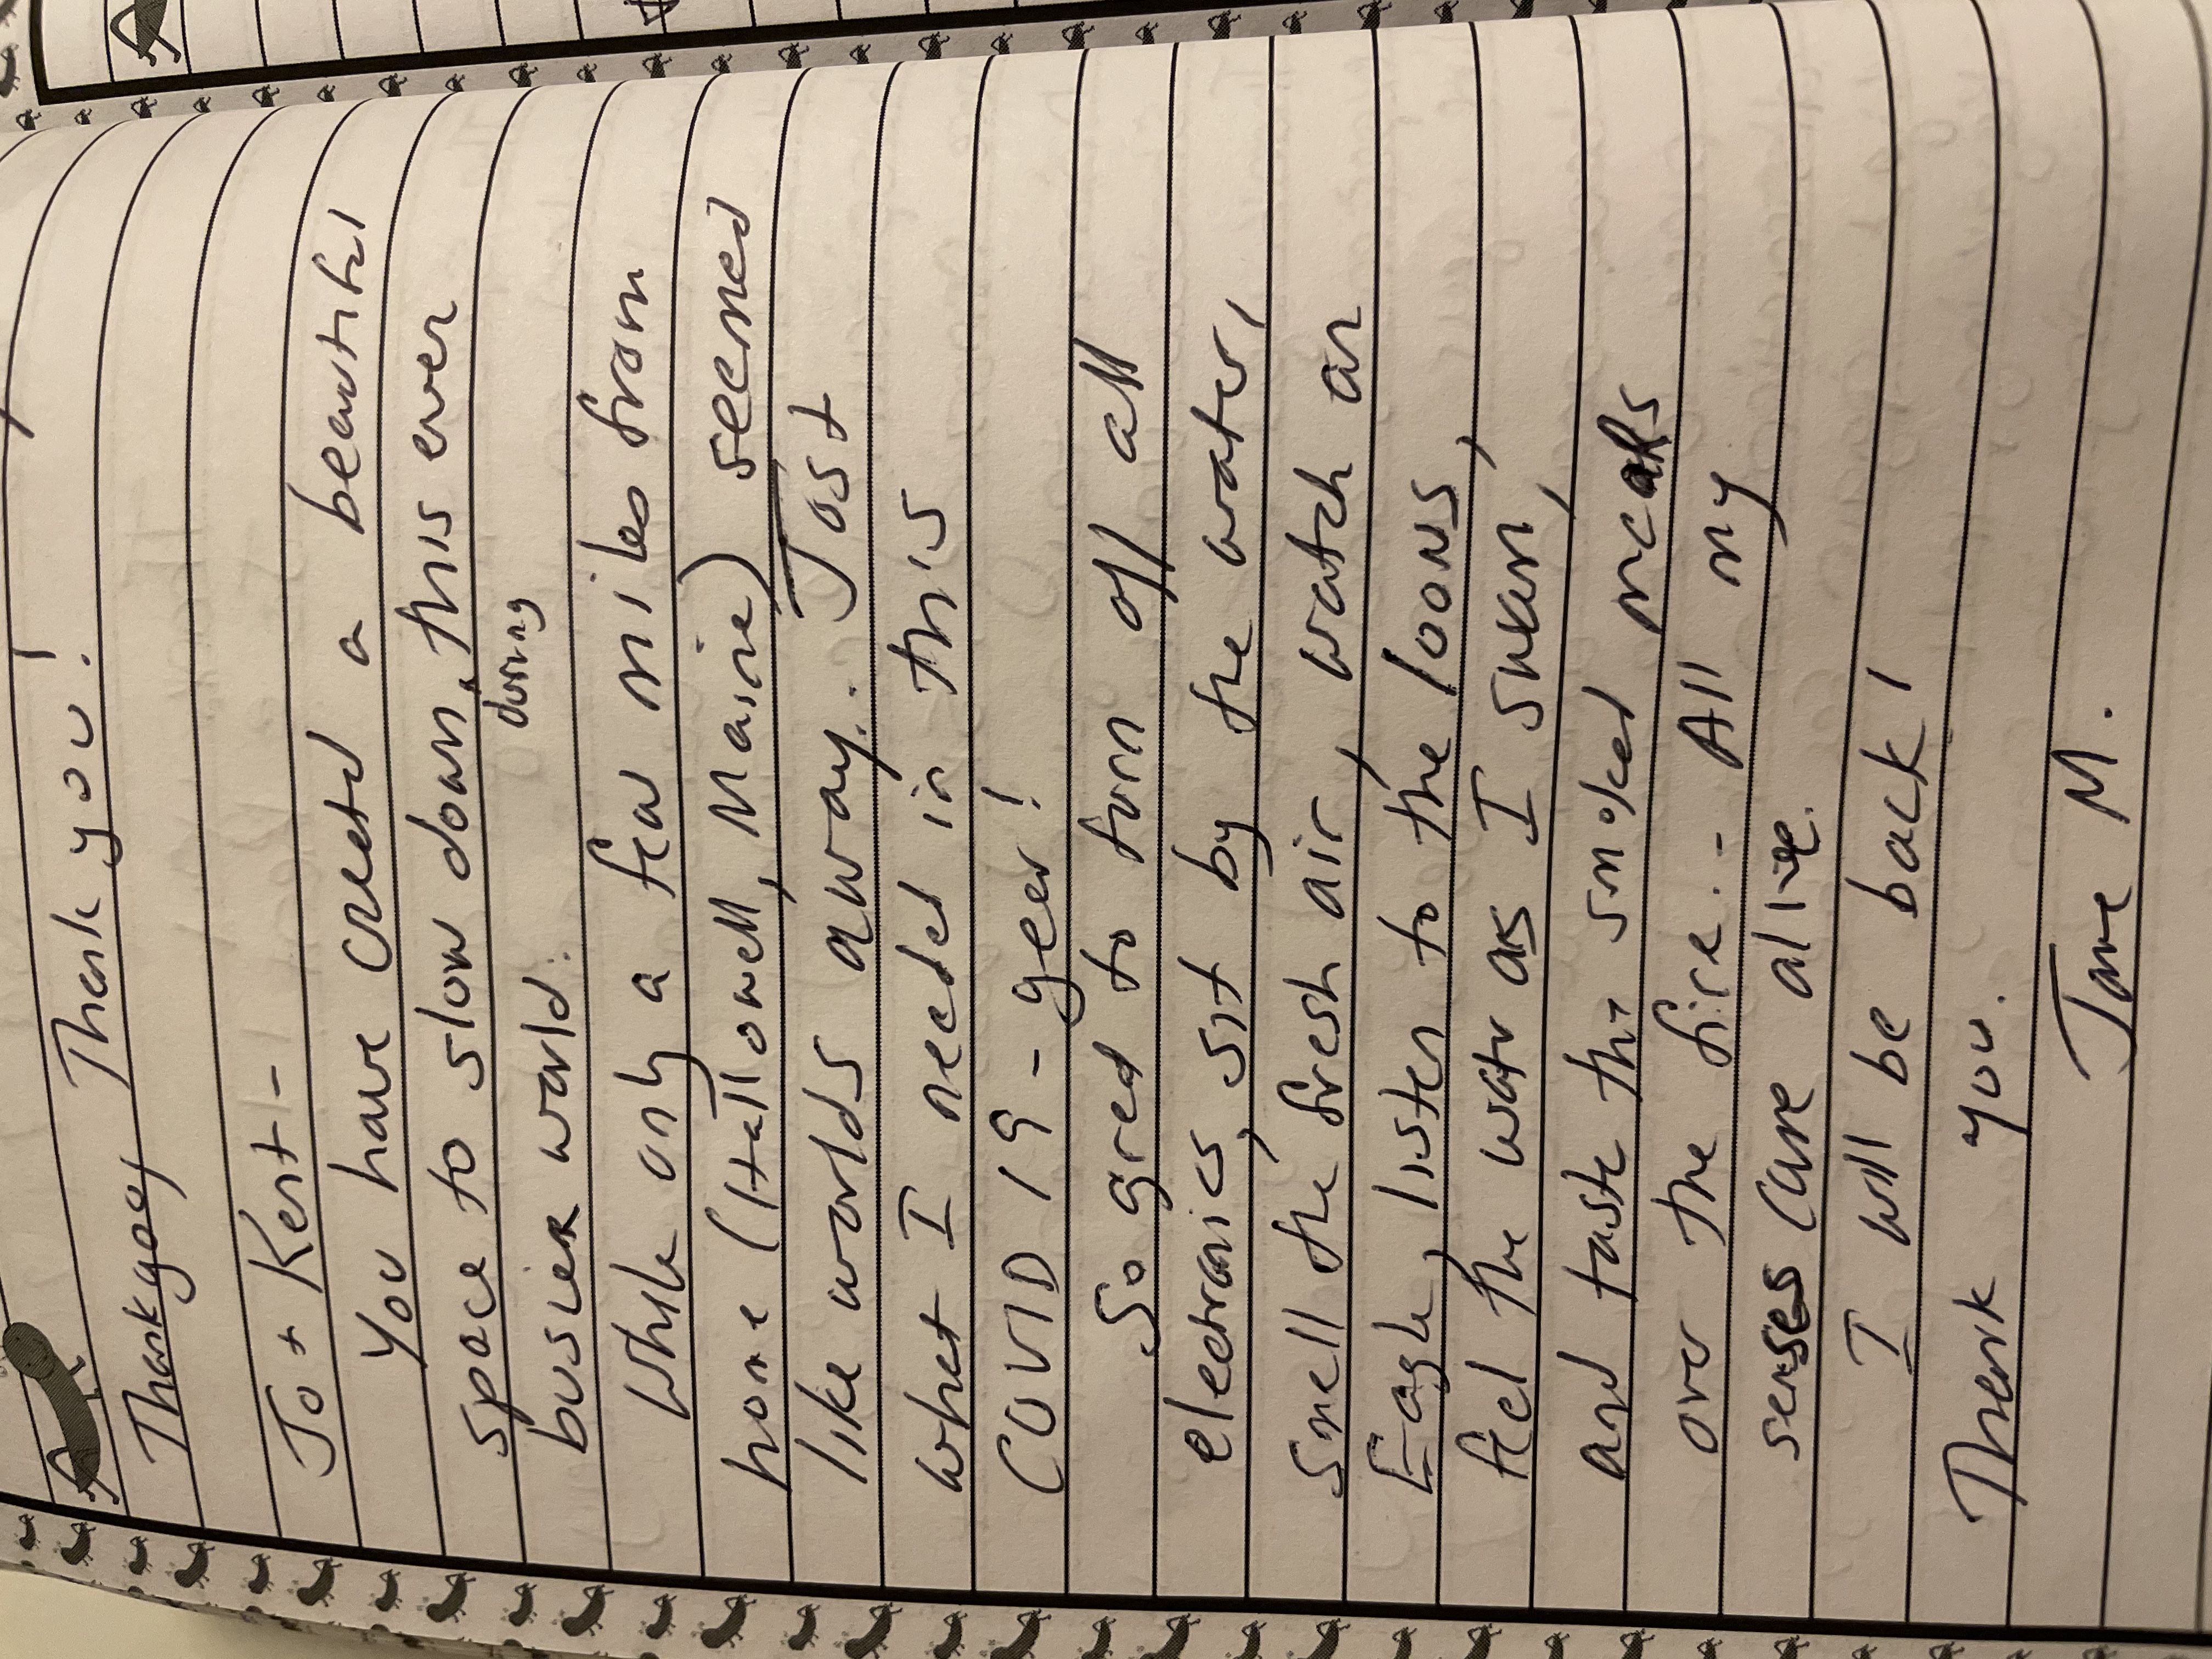 Thank you!
Thank you,
Jo + Kent -
You have created a beautiful
space to slow down, this ever
during
busier world.
While only a few miles from
home (Hallowell, Maine) seemed
like worlds away.. Just
what I needed in this
COVID 19 - year!
So great to turn off all
electronics, sit by the water,
smell the fresh air, watch an
Eagle, listen to the loons,
feel the water as I swam,
and taste the smoked meals
over the fire. - All my
senses came alive.
I will be back!
Thank you.
Jane M.